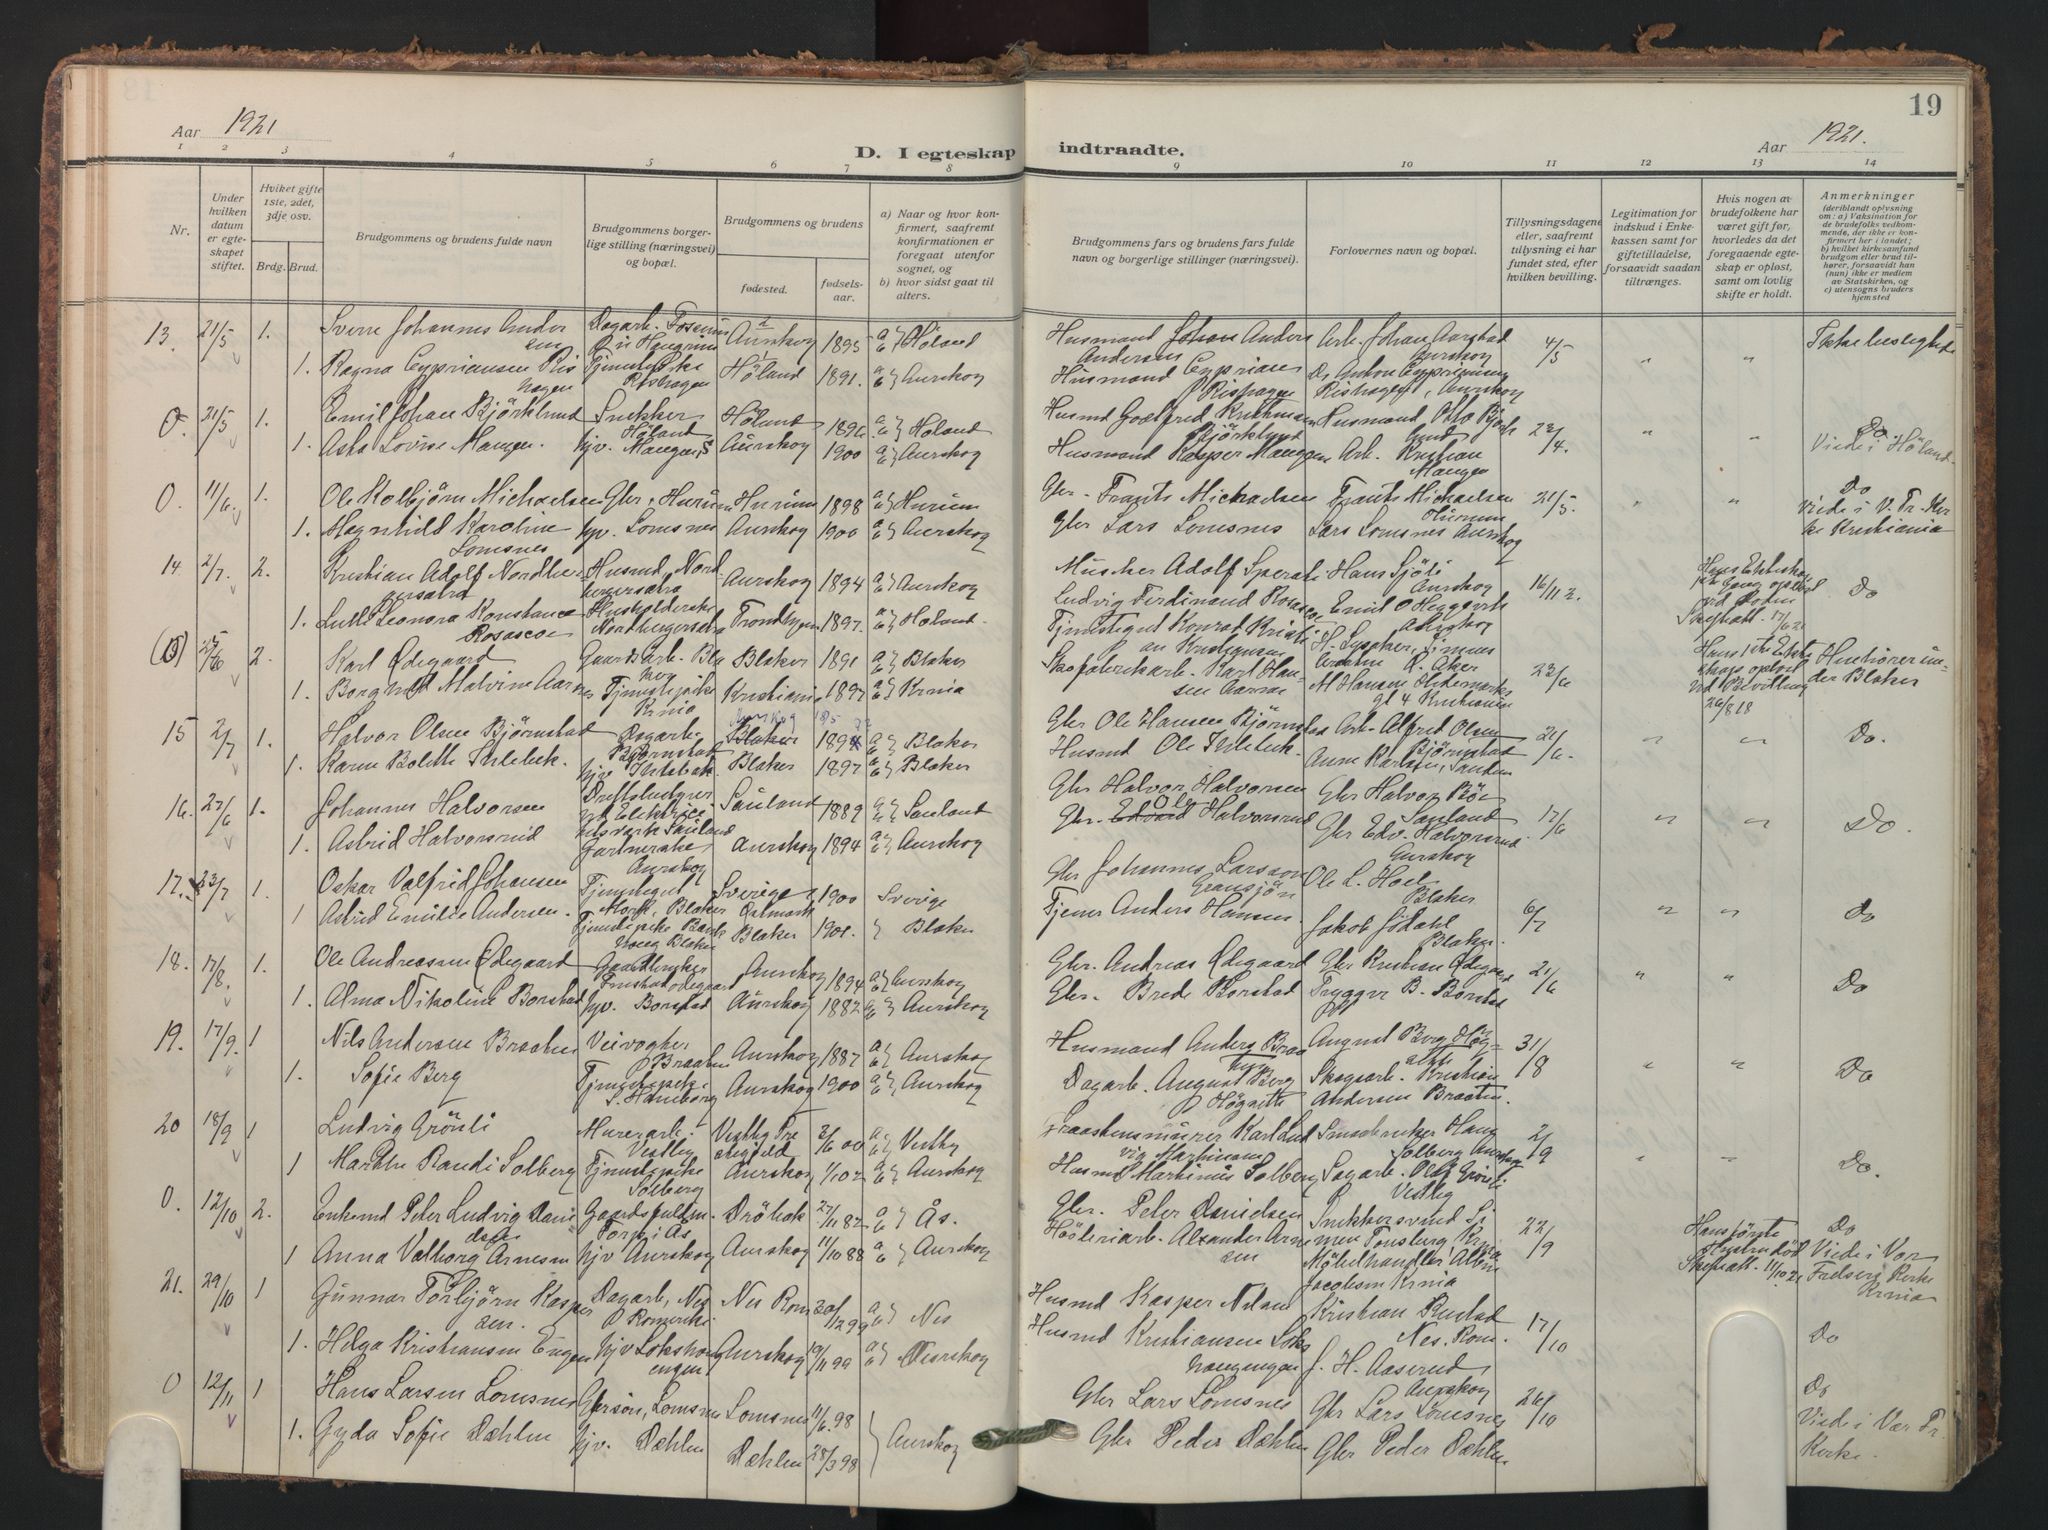 19
Aar 1921
D. I egteskap indtraadte.
Aar 1921.
1 2 3 4 5 6 7 8 9 10 11 12 13 14
Nr.
Under hvilken datum er egteskapet stiftet.
Hviket gifte 1ste, 2det, 3dje osv.
Brdg. Brud.
Brudgommens og brudens fulde navn
Brudgommens borgerlige stilling (næringsvei) og bopæl.
Brudgommens og brudens
fødested.
fødselsaar.
a) Naar og hvor konfirmert, saafremt konfirmationen er foregaat utenfor sognet, og
b) hvor sidst gaat til alters.
Brudgommens fars og brudens fars fulde navn og borgerlige stillinger (næringsvei).
Forlovernes navn og bopæl.
Tillysningsdagene eller, saafremt tillysning ei har fundet sted, efter hvilken bevilling.
Legitimation for indskud i Enkekassen samt for giftetilladelse, forsaavidt saadan tiltrænges.
Hvis nogen av brudefolkene har været gift før, hvorledes da det foregaaende egteskap er opløst, samt om lovlig skifte er holdt.
Anmerkninger
(deriblandt oplysning om: a) Vaksination for de brudefolks vedkommende, der ikke er konfirmert her i landet; b) hvilket kirkesamfund brudgom eller brud tilhører, forsaavidt han (hun) ikke er medlem av Statskirken, og c) utensogns bruders hjemsted
13. 21/5 1. Sverre Johannes Andersen Dagarb. Aurskog 1895 a b } Høland Husmand Johan Anders Andersen Arb. Johan Aarstad Aurskog 4/5 " " Ikke beslegtede
1. Ragna Cypriansen Rishagen Tjenestepike Rishagen Høland 1891. a b } Aurskog Husmand Cyprian Rishagen Anton Cypriansen Rishagen, Aurskog
0. 21/5 1. Emil Johan Björklund Snekker Høland Höland 1896. a b } Høland Husmd Gotfred Kristiansen Björklund Husmand Otto Björklund 23/4. " " Do Viede i Höland.
1. Asta Lovise Mangen. hjv. Mangen, Aurskog 1900 a b } Aurskog Husmand Kasper Mangen Arb. Kristian Mangen
0. 11/6. 1. Ole Kolbjörn Michaelsen Gbr. Hurum Hurum 1898 a b } Hurum Gbr. Frants Michaelsen Frants Michaelsen Hurum 21/5. " " Do viede i V. Fr. Kerke Kristiania
1. Magnhild Karoline Lomsnes hjv. Lomsnes Aurskog 1900 a b } Aurskog Gbr Lars Lomsnes Lars Lomsnes Aurskog
14. 2/7. 2. Kristian Adolf Nordbergersætra Husmd. Nordbergersætra Aurskog 1894 a b } Aurskog Adolf Hans Sjöli Aurskog 16/11 2. Do
1. Lutti Leonora Konstance Rosascoe Husholderske Nordbergersætra Trondhjem 1897. a b } Høland. Ludvig Ferdinand Rosascoe Emil O Heggerts Aurskog
(0) 25/6 2. Karl Ødegaard Gaardsarb. Blaker Blaker 1891 a b } Blaker Tjenestegut Konrad Kristian Kristiansen 23/6 Hans 1ste Ekteskap opløst ved Bevilling 26/8 18 Hustru under Blaker
1. Borghild Malvine Aarnes Tjenestepike Krnia Kristiania 1897 a b } Krnia Skofabrikarb. Karl Hansen Aarnæs M Hansen
15 2/7 1. Halvor Olsen Bjørnstad Dagarb. Bjørnstad Blaker Aurskog 1894 a b } Blaker Gbr Ole Hansen Bjørnstad Arb. Alfred Olsen Bjørnstad 21/6. " " Do.
1. Karen Bolette Ihlebek. hjv Ihlebæk. Blaker 1897 a b } Blaker Husmd Ole Ihlebek.
16. 27/6 1. Johannes Halvorsen Driftsbestyrer Sauland 1889 a b } Sauland Gbr Halvor Halvorsen Gbr Halvor Böe Sauland 17/6 " " Do.
1. Astrid Halvorsrud Gartnerske Aurskog Aurskog 1894 a b } Aurskog Gbr. Ole Halvorsrud Gbr Edv. Halvorsrud. Aurskog
17. 23/7 1. Oskar Valfrid Johansen Tjenestegut Mork, Blaker Sverige Östmark 1900 Sverige Gbr Johannes Larsson Gransjön Ole L. Hoel Blaker 6/7 " " Do
1 Astrid Emilie Andersen. Tjenestepike Blaker Blaker 1901. } Blaker Tjener Anders Hansen. Jakob Jödahl Blaker.
18. 17/8. 1. Ole Andreassen Ødegaard Gaardbruker Ødegaard Aurskog 1894 a b } Aurskog Gbr. Andreas Ødegaard Gbr Kristian Ødegaard 21/6 " " Do
1. Alma Nikoline Borstad hjv. Borstad Aurskog 1882 a b } Aurskog Gbr. Brede Borstad Tryggve B. Borstad
19. 17/9. 1 Nils Andersen Braaten Veivogter Braaten Aurskog 1887 a b } Aurskog Husmand Anders Braaten August Berg 31/8 " " Do
1. Sofie Berg Tjenestepike S. Haneborg Aurskog 1900 a b } Aurskog Dagarb. August Berg Högsette Skogsarb. Kristian Andersen Braaten.
20 18/9 1 Ludvig Grönli Murerarb. Vestby Vestby 3/6 00 a b } Vestby Graastensmurer Karl Ludvig Martinsen Smaabruker Haug Solberg Aurskog 2/9 " " Do.
1 Marthe Randi Solberg Tjenestepike Solberg Aurskog 1/10 02 a b } Aurskog Husmd Martinus Solberg Sagarb. Olaf Grönli Vestby
0. 12/10 2. Enkemd Peter Ludvig Danielsen Gaardsfuldm. Torp i Ås Dröbak 27/11 82 a b } Ås. Gbr. Peter Danielsen Snekkersvend Simen Tonsberg Krnia 22/9 Hans förste Hustru död Skifteatt. 11/10 21 Do Viede i Vor Frelsers Kerke Krnia
1 Anna Valborg Arnesen hjv Aurskog Aurskog 11/10 88 a b } Aurskog Hövleriarb. Alexander Arnesen Möbelhandler Albin Jacobsen Krnia
21. 29/10 1 Gunnar Torbjörn Kaspersen. Dagarb. Nes Romerike Nes Rom 30/12 99 a b } Nes Husmd Kasper Nilsen Kristian Rustad Nes. Rom. 17/10 Do
1. Helga Kristiansen Engen hjv Lokshougengen Aurskog 19/11 99 a b } Aurskog Husmd Kristiansen Lokshougengen J. H. Aaserud Aurskog
0 12/11 1 Hans Larsen Lomsnes Gbrsön, Lomsnes Lomsnes 11/6. 98 } Aurskog Gbr Lars Lomsnes Gbr Lars Lomsnes 26/10 Do Viede i Vor Fr. Kerke.
1. Gyda Sofie Dæhlen hjv. Dæhlen Dæhlen 28/3 98 Gbr Peder Dæhlen Gbr Peder Dæhlen